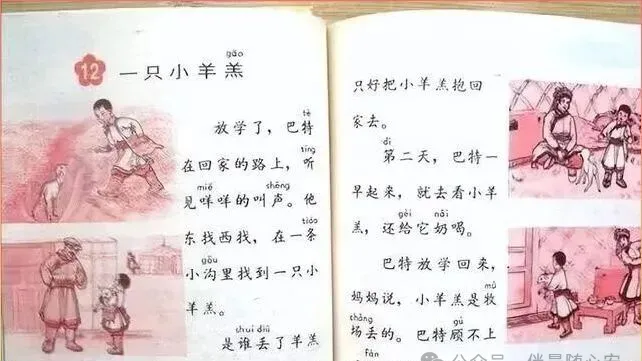 12 一只小羊羔
gāo
tè
放学了，巴特
tíng
在回家的路上，听
miē shēng
见咩咩的叫声。他
tiáo
东找西找，在一条
gōu
小沟里找到一只小
羊羔。
shuí diū
是谁丢了羊羔
只好把小羊羔抱回
家去。
dì
第二天，巴特一
早起来，就去看小羊
gěi nǎi
羔，还给它奶喝。
巴特放学回来，
mù
妈妈说，小羊羔是牧
chǎng
场丢的。巴特顾不上
fàn